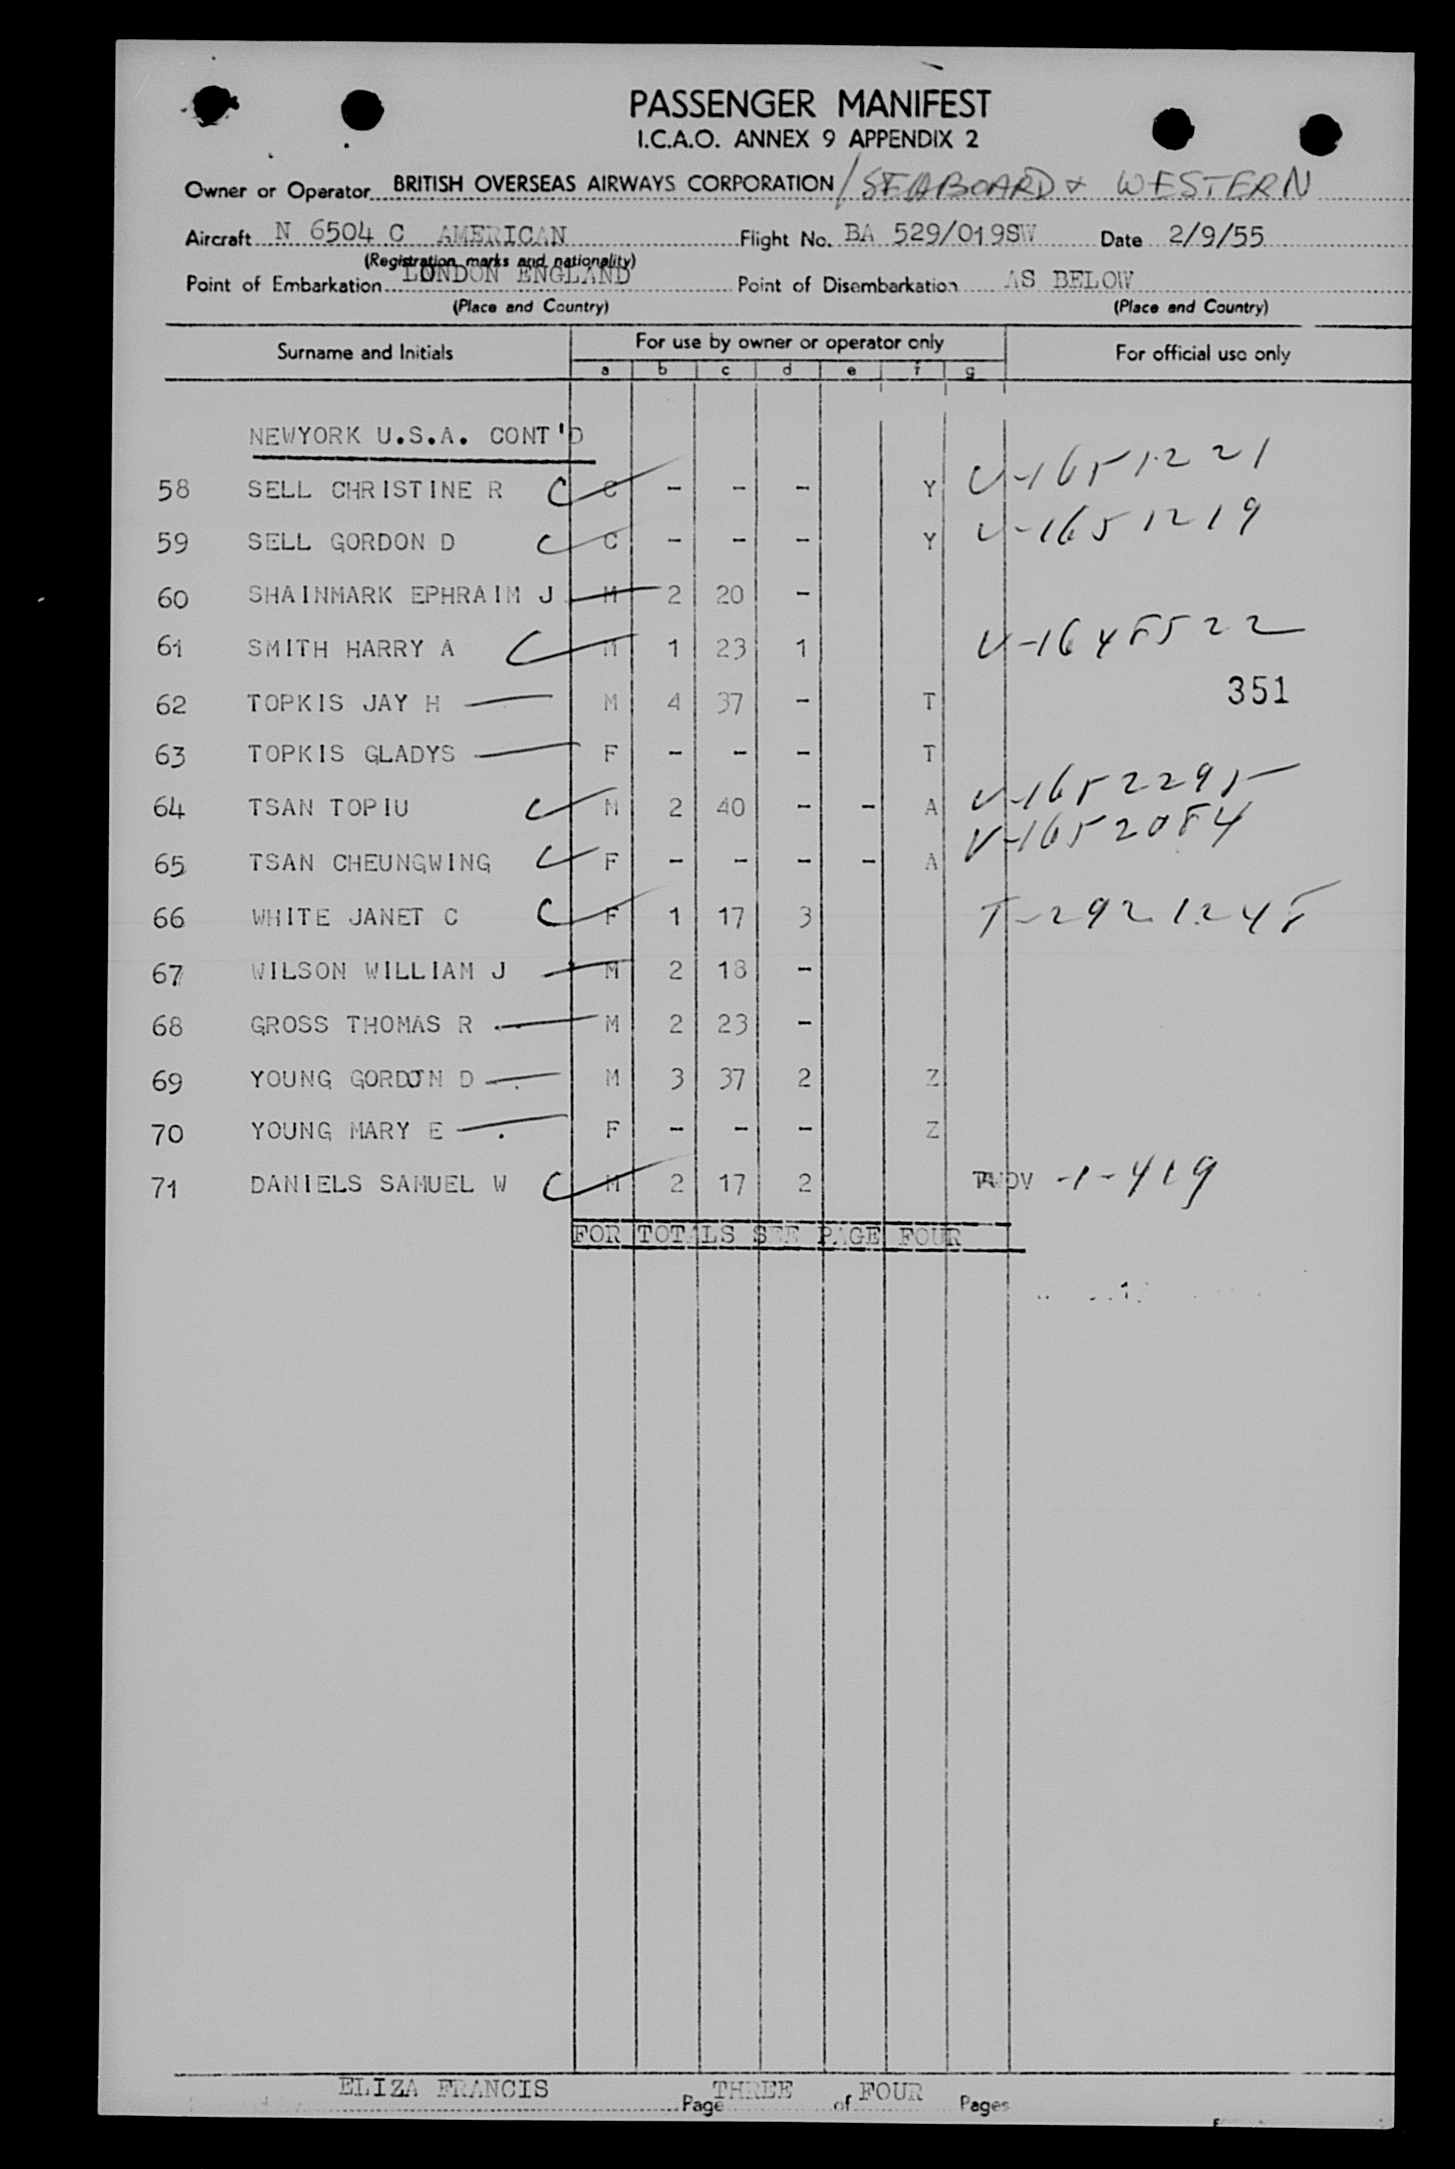 PASSENGER MANIFEST
I.C.A.O. ANNEX 9 APPENDIX 2
Owner or Operator BRITISH OVERSEAS AIRWAYS CORPORATION / SEABOARD & WESTERN
Aircraft N 6504 C AMERICAN Flight No. BA 529/019SW Date 2/9/55
(Registration marks and nationality)
Point of Embarkation LONDON ENGLAND Point of Disembarkation AS BELOW
(Place and Country) (Place and Country)
Surname and Initials For use by owner or operator only For official use only
a b c d e f g
NEWYORK U.S.A. CONT'D
58 SELL CHRISTINE R C C - - - Y V-1651221
59 SELL GORDON D C C - - - Y V-1651219
60 SHAINMARK EPHRAIM J M 2 20 -
61 SMITH HARRY A C M 1 23 1 V-1648522
62 TOPKIS JAY H M 4 37 - T 351
63 TOPKIS GLADYS F - - - T
64 TSAN TOPIU C M 2 40 - - A V-1652295
65 TSAN CHEUNGWING C F - - - - A V-1652084
66 WHITE JANET C C F 1 17 3 T-2921248
67 WILSON WILLIAM J M 2 18 -
68 GROSS THOMAS R M 2 23 -
69 YOUNG GORDON D M 3 37 2 Z
70 YOUNG MARY E F - - - Z
71 DANIELS SAMUEL W C M 2 17 2 -1-419
FOR TOTALS SEE PAGE FOUR
ELIZA FRANCIS Page THREE of FOUR Pages